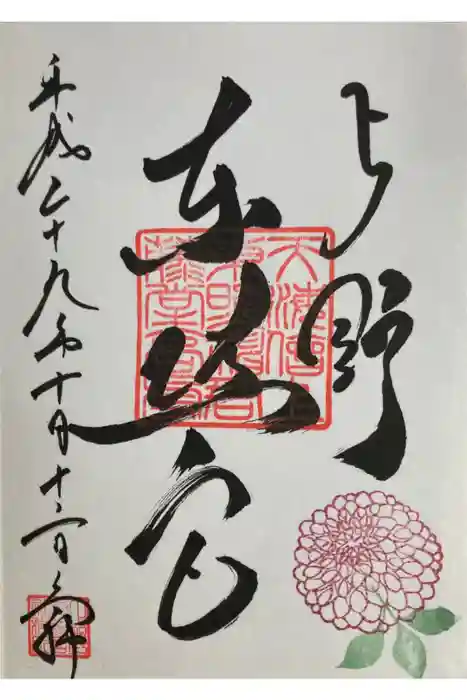 上野
東照宮
天海僧正
東照神君
藤堂高虎
平成二十九年十月十二日
参拝